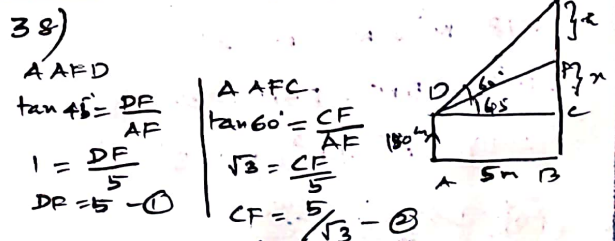 38)
Δ AFD
tan 45° = DF/AF
1 = DF/5
DF = 5 - ①
Δ AFC.
tan 60° = CF/AF
√3 = CF/5
CF = 5/√3 - ②
D
60°
45
x
C
A
5m
B